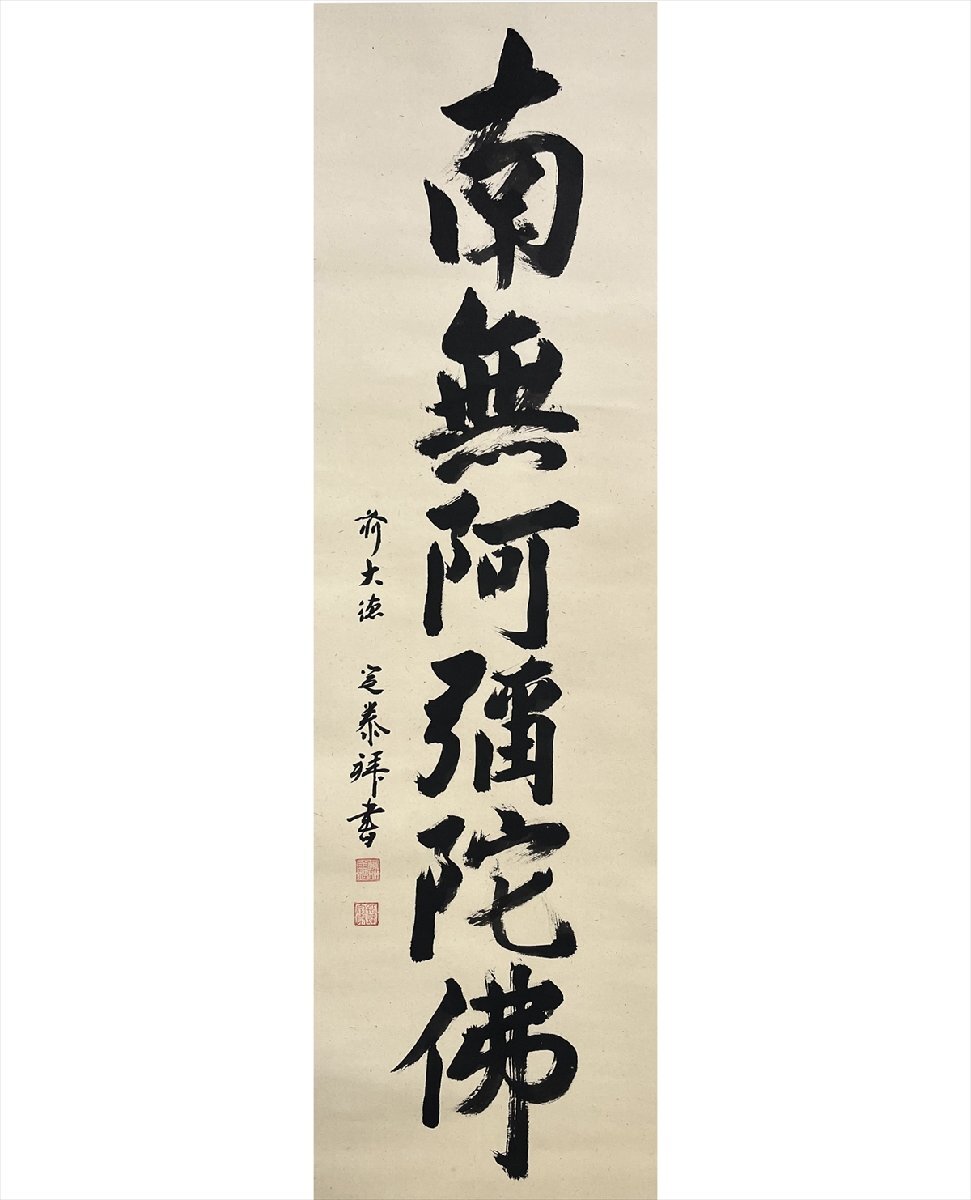 南無阿彌陀佛
前大德 寛泰拜書